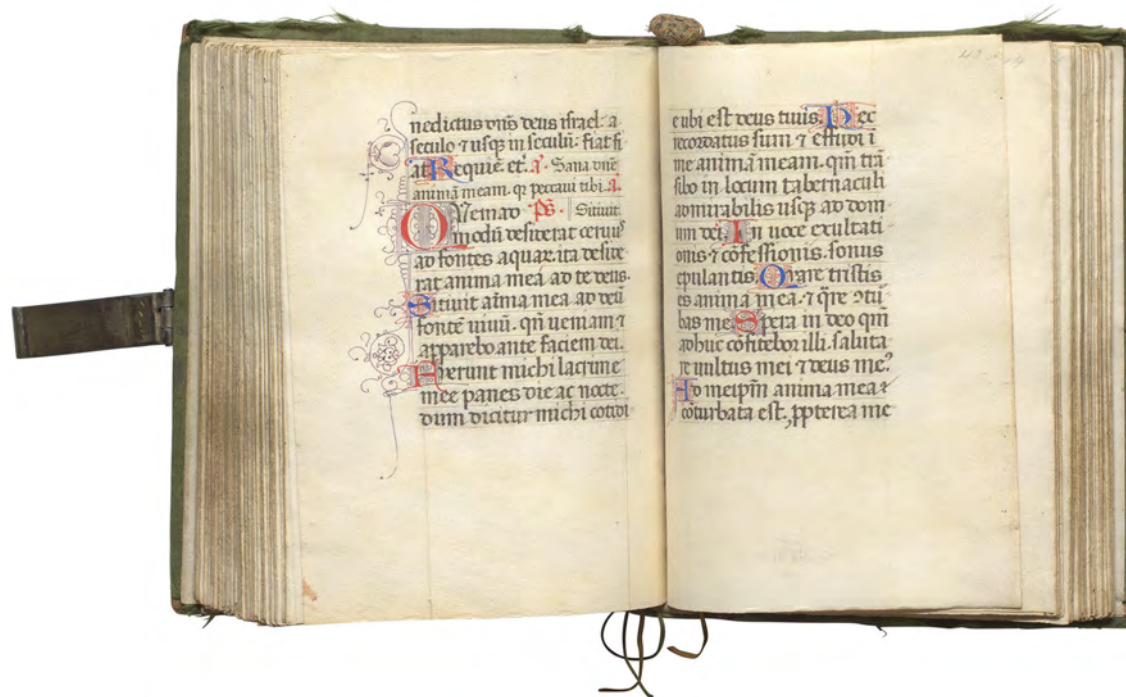 nedictus dn̄s deus israel· a
seculo ⁊ usqꝫ in seculū· fiat fi
at Requiē et̉· a̾· Sana dn̄e
animā meam· qꝛ peccaui tibi· a̾·
QVemad p̄s̄· Sitiuit
modū desiderat ceruuꝰ
ad fontes aquaꝝ· ita deside
rat anima mea ad te deus·
Sitiuit aīma mea ad deū
fontē uiuū· qn̄ ueniam ⁊
apparebo ante faciem dei·
Fuerunt michi lacrime
mee panes die ac nocte·
dum dicitur michi cotidi
e ubi est deus tuus· Hec
recordatus sum ⁊ effudi i
me animā meam· qm̄ trā
sibo in locum tabernaculi
admirabilis usqꝫ ad dom
um dei· In uoce exultati
onis ⁊ cōfessionis· sonus
epulantis· Quare tristis
es anima mea· ⁊ q̄re ꝯtū
bas me· Spera in deo qm̄
adhuc cōfitebor illi· saluta
re uultus mei ⁊ deus meꝰ
Ad meip̄m anima mea
cōturbata est· ꝓpterea me